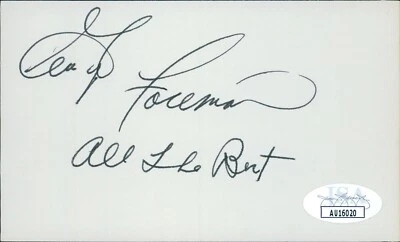 George Foreman
All The Best
JSA
AU16020